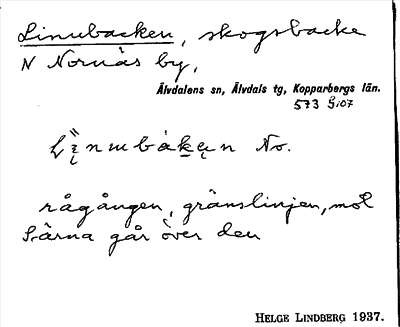 Linnubacken, skogsbacke
N Nornäs by,
Älvdalens sn, Älvdals tg, Kopparbergs län.
573 G:07
No.
rågången, gränslinjen, mot
Särna går över den
HELGE LINDBERG 1937.